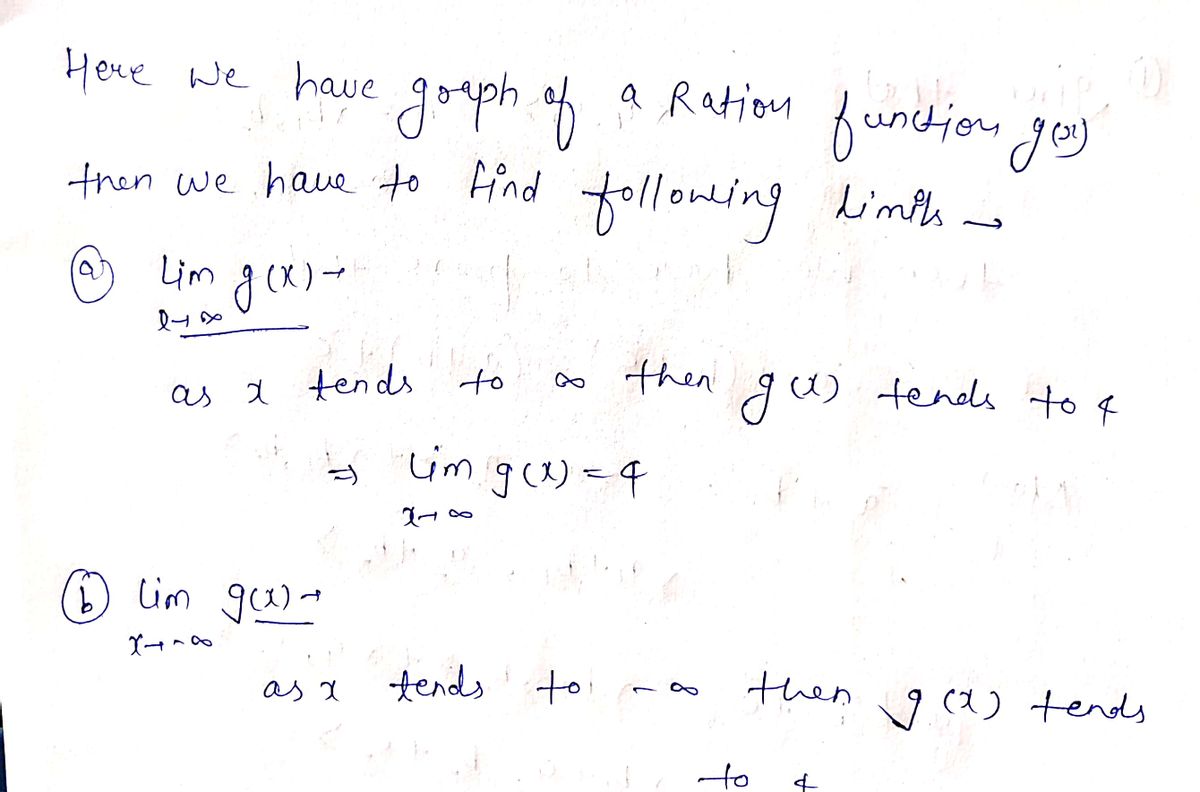 Here we have graph of a Ration function g(x)
then we have to find following Limits →
(a) Lim g(x) →
x→∞
as x tends to ∞ then g(x) tends to 4
⇒ Lim g(x) = 4
x→∞
(b) lim g(x) →
x→-∞
as x tends to -∞ then g(x) tends
to 4